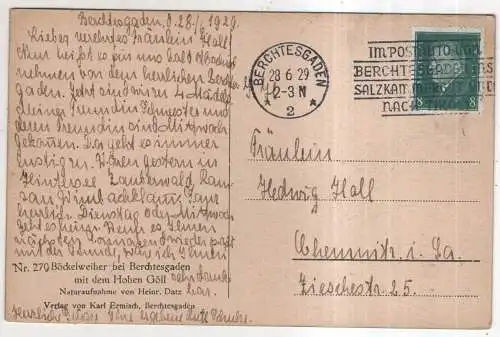 Berchtesgaden, d. 28./6. 1929.
Liebes verehrtes Fräulein Hall
Nun heißt es für uns bald Abschied
nehmen von dem herrlichen Berchtes-
gaden. Jetzt sind wir 4 Mädels
meiner Freundin Schwester und
deren Freundin sind Mittwoch
gekommen. Da geht es immer
lustig zu. Waren gestern in
Hintersee Zauberwald Ram-
sau Wimbachklam. Ganz
herrlich. Dienstag oder Mittwoch
geht es
wieder
mit der
dank-
bar.
Herzliche Grüße Ihre ergebene
Nr. 279 Böckelweiher bei Berchtesgaden
mit dem Hohen Göll
Naturaufnahme von Heinr. Datz
Verlag von Karl Ermisch, Berchtesgaden
BERCHTESGADEN
28 6 29
2-3 N
* 2 *
IM POSTAUTO VON
BERCHTESGADEN INS
SALZKAMMERGUT UND
NACH TIROL
8 8
Fräulein
Hedwig Hall
Chemnitz i. Sa.
Zieschestr. 25.